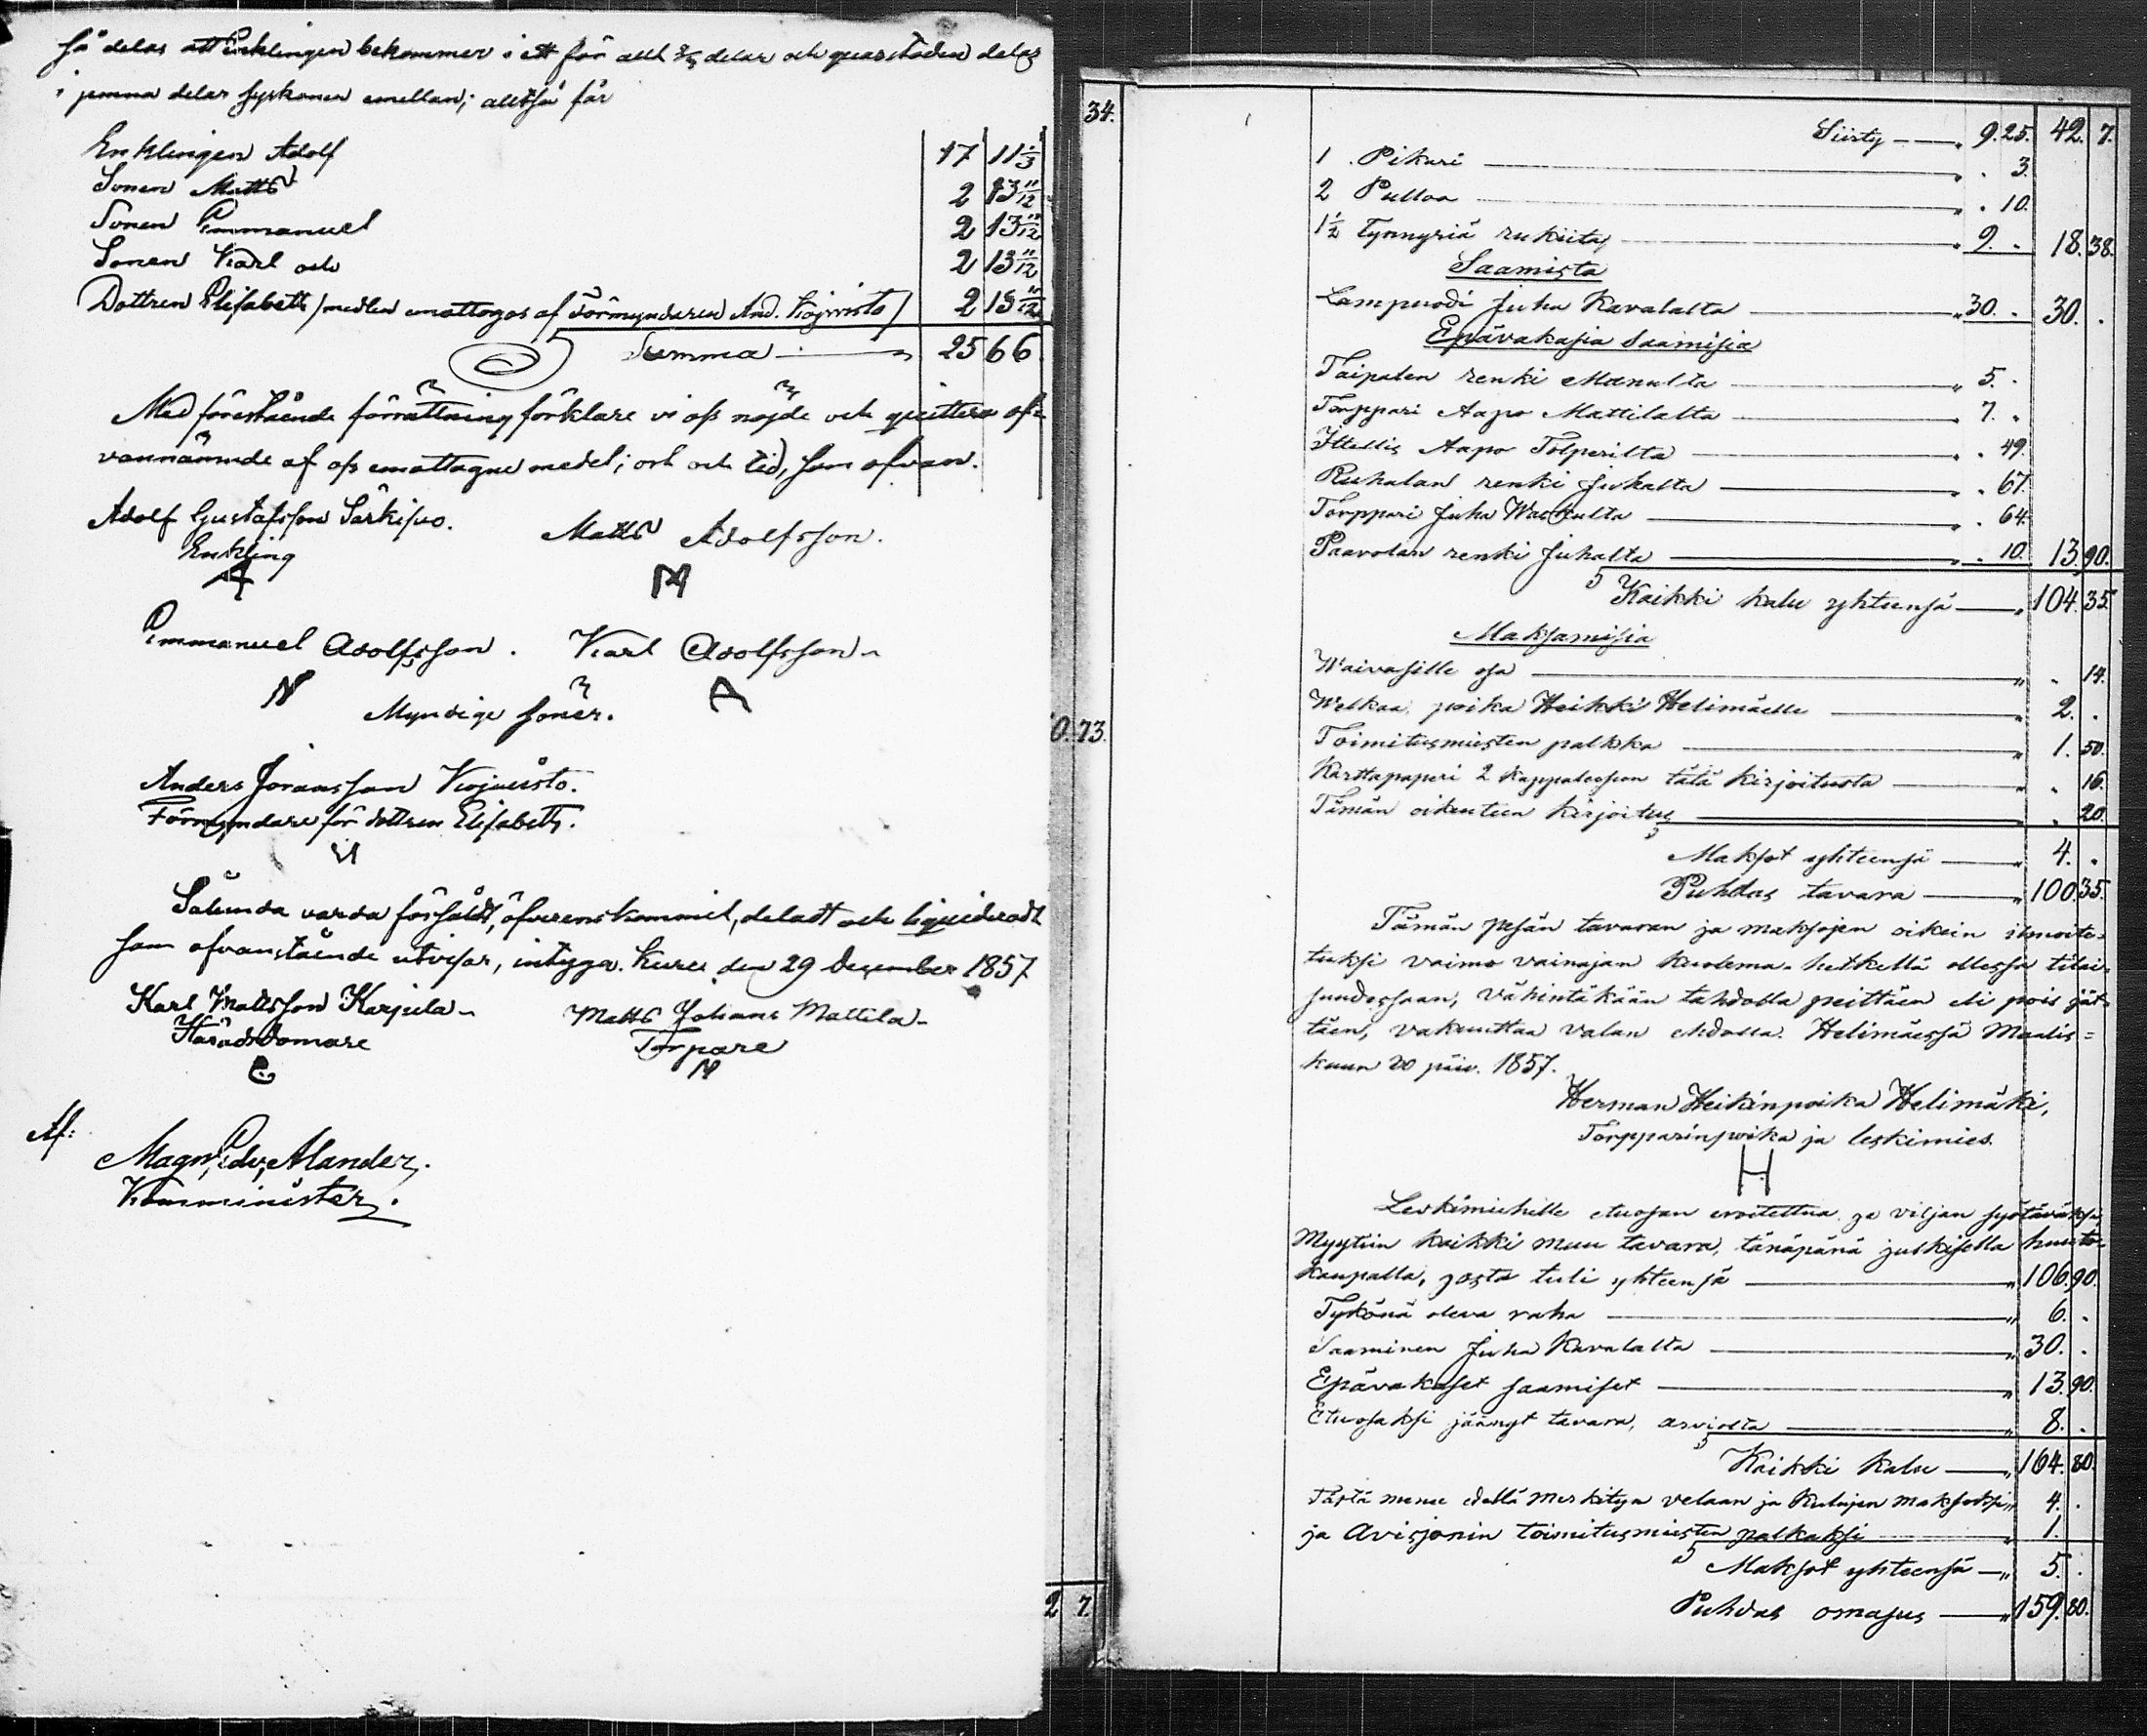 så delas att Enklingen bekommer i ett för allt 2/3 delar och quarstoden delas
i jemna delar syskonen emellan; alltså får
Enklingen Adolf 17 11 1/3
Sonen Matts 2 13 11/12
Sonen Emmanuel 2 13 11/12
Sonen Karl och 2 13 11/12
Dottren Elisabeth /medlen emottogos af Förmyndaren And. Kojvisto/ 2 13 11/12
Summa 25 66
Med förestående förrättning förklare vi oss nöjde och quittera of-
vannämnde af oss emottagne medel; ort och tid, som ofvan.
Adolf Gustafsson Särkisuo. Matts Adolfsson.
Enkling
A M
Emmanuel Adolfsson. Karl Adolfsson
N A
Myndige söner.
Anders Joransson Kojvisto.
Förmyndare för dottren Elisabeth.
Sålunda varda försåldt, öfverenskommit, deladt och liquideradt
som ofvanstående utvisar, intyga. Kuru den 29 December 1857
Karl Mattsson Karjula Matts Johans Mattila
Häradsdomare Torpare
M
Af:
Magn. Edv. Alander,
Komminister.
0. 73.
2 7.
34.
Siirty 9. 25. 42. 7.
1 Pikari 3.
2 Pulloa 10.
1 1/2 Tynnyriä rukiita 9. 18. 38.
Saamista
Lampuodi Juha Kavalalta 30. 30.
Epävakasia Saamisia
Taipalen renki Manulta 5.
Torppari Aapo Mattilalta 7.
Ittellis Aapo Tolperilta 49.
Ruhalan renki Juhalta 67.
Torppari Juha 64.
Paavolan renki Juhalta 10. 13. 90.
Kaikki kalu yhteensä 104. 35.
Maksamisia
Waivasille osa 14.
Welkaa, poika Heikki Helimäelle 2.
Toimitusmiesten palkka 1. 50.
Karttapaperi 2 kappaleesson tätä kirjoitusta 16.
Tämän oikeuteen kirjoitus 20.
Maksot yhteensä 4.
Puhdas tavara 100. 35.
Tämän pesän tavaran ja maksojen oikein ilmoite-
tuksi vaimo vainajan kuolema-hetkellä ollessa tilai-
suudessaan, vähintäkään tahdolla peittäen eli pois jät-
täen, vakuuttaa valan ehdolla. Helimäessä Maalis-
kuun 20 päiv. 1857.
Herman Heikinpoika Helimäki,
Torpparinpoika ja leskimies.
H
Leskimiehille etuosan eroitettua ja viljan syötäväksi
Myytiin kaikki muu tavara, tänäpänä julkisella huuto-
kaupalla, josta tuli yhteensä 106. 90.
Tykönä oleva raha 6.
Saaminen Juha Kavalalta 30.
Epävakaset saamiset 13. 90.
Etuosaksi jäänyt tavara, arviolta 8.
Kaikki kalu 164. 80.
Tästä menee edellä merkityn velaan ja kulujen maksoksi 4.
ja Avisjonin toimitusmiesten palkaksi 1.
Maksot yhteensä 5.
Puhdas omasus 159. 80.